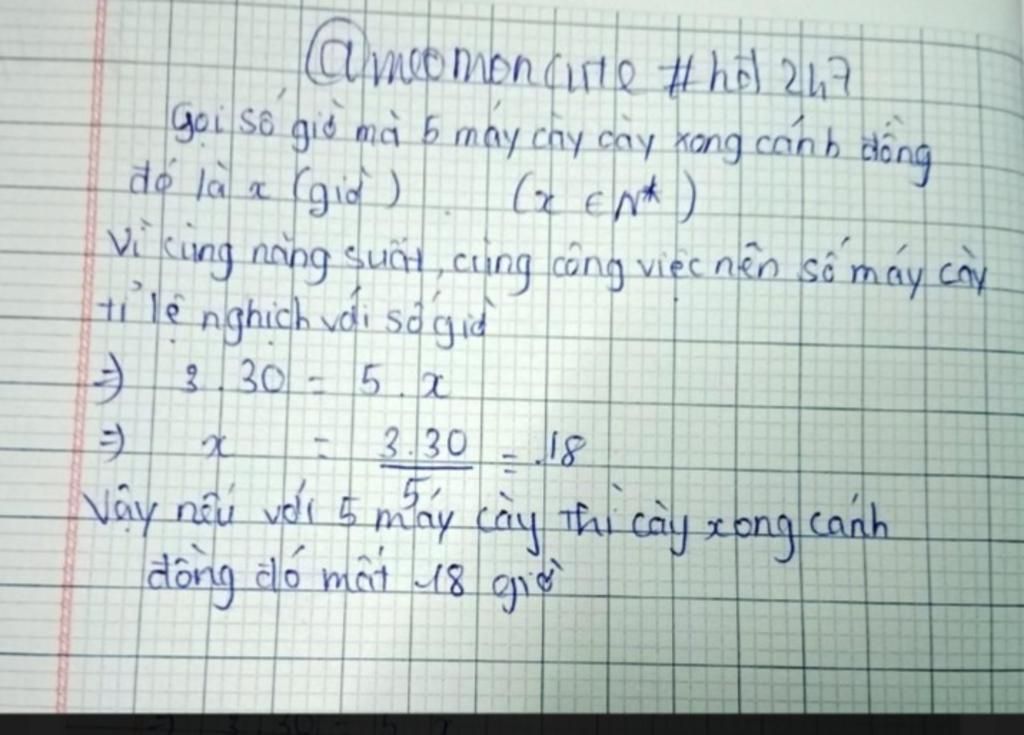 @meomoncute #hđ 247
Gọi số giờ mà 5 máy cày cày xong cánh đồng
đó là x (giờ) (x ∈ N*)
Vì cùng năng suất, cùng công việc nên số máy cày
tỉ lệ nghịch với số giờ
⇒ 3.30 = 5.x
⇒ x = 3.30 / 5 = 18
Vậy nếu với 5 máy cày thì cày xong cánh
đồng đó mất 18 giờ